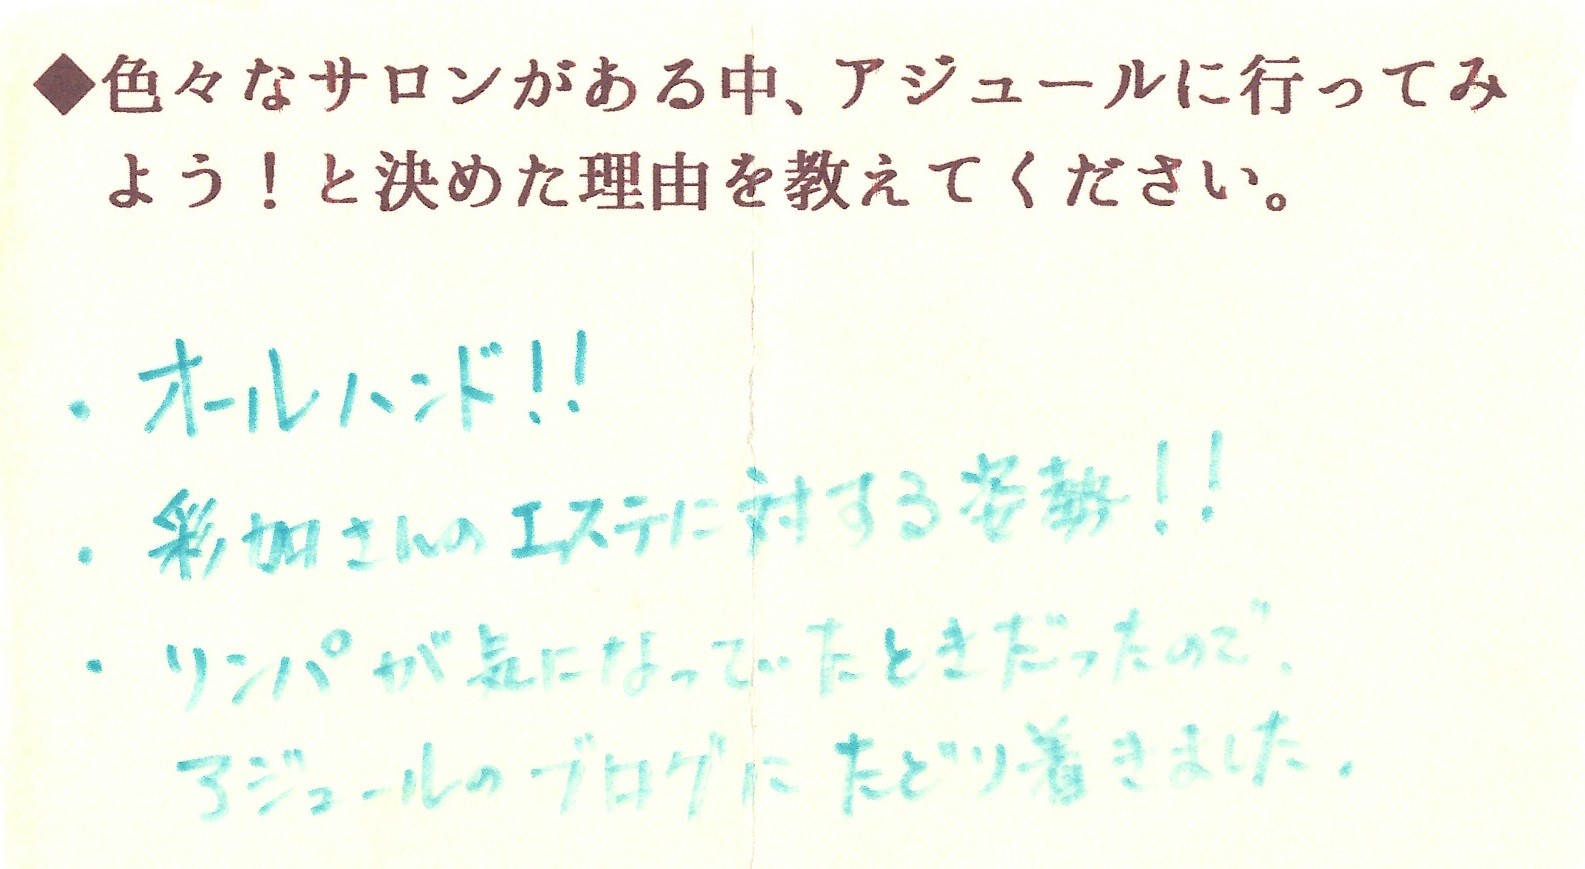 ◆色々なサロンがある中、アジュールに行ってみ
よう！と決めた理由を教えてください。
・オールハンド!!
・彩加さんのエステに対する姿勢!!
・リンパが気になっていたときだったので、
アジュールのブログにたどり着きました.